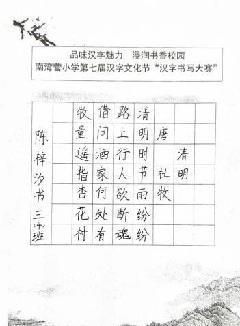 品味汉字魅力 浸润书香校园
南湾营小学第七届汉字文化节“汉字书写大赛”
清明
唐 杜牧
清明时节雨纷纷
路上行人欲断魂
借问酒家何处有
牧童遥指杏花村
陈梓汐书 三 班